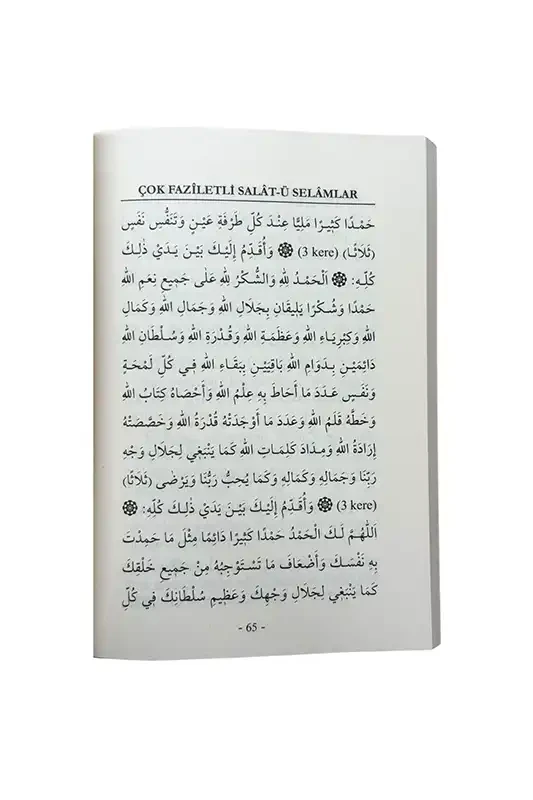 ÇOK FAZÎLETLİ SALÂT-Ü SELÂMLAR
حَمْدًا كَثِيرًا مَلِيًّا عِنْدَ كُلِّ طَرْفَةِ عَيْنٍ وَتَنَفُّسِ نَفَسٍ
(ثَلَاثًا) (3 kere) ۞ وَأُقَدِّمُ إِلَيْكَ بَيْنَ يَدَيْ ذٰلِكَ
كُلِّهِ: ۞ اَلْحَمْدُ لِلّٰهِ وَالشُّكْرُ لِلّٰهِ عَلٰى جَمِيعِ نِعَمِ اللّٰهِ
حَمْدًا وَشُكْرًا يَلِيقَانِ بِجَلَالِ اللّٰهِ وَجَمَالِ اللّٰهِ وَكَمَالِ
اللّٰهِ وَكِبْرِيَاءِ اللّٰهِ وَعَظَمَةِ اللّٰهِ وَقُدْرَةِ اللّٰهِ وَسُلْطَانِ اللّٰهِ
دَائِمَيْنِ بِدَوَامِ اللّٰهِ بَاقِيَيْنِ بِبَقَاءِ اللّٰهِ فِي كُلِّ لَمْحَةٍ
وَنَفَسٍ عَدَدَ مَا أَحَاطَ بِهِ عِلْمُ اللّٰهِ وَأَحْصَاهُ كِتَابُ اللّٰهِ
وَخَطَّهُ قَلَمُ اللّٰهِ وَعَدَدَ مَا أَوْجَدَتْهُ قُدْرَةُ اللّٰهِ وَخَصَّصَتْهُ
إِرَادَةُ اللّٰهِ وَمِدَادَ كَلِمَاتِ اللّٰهِ كَمَا يَنْبَغِي لِجَلَالِ وَجْهِ
رَبِّنَا وَجَمَالِهِ وَكَمَالِهِ وَكَمَا يُحِبُّ رَبُّنَا وَيَرْضٰى (ثَلَاثًا)
(3 kere) ۞ وَأُقَدِّمُ إِلَيْكَ بَيْنَ يَدَيْ ذٰلِكَ كُلِّهِ: ۞
اَللّٰهُمَّ لَكَ الْحَمْدُ حَمْدًا كَثِيرًا دَائِمًا مِثْلَ مَا حَمِدْتَ
بِهِ نَفْسَكَ وَأَضْعَافَ مَا تَسْتَوْجِبُهُ مِنْ جَمِيعِ خَلْقِكَ
كَمَا يَنْبَغِي لِجَلَالِ وَجْهِكَ وَعَظِيمِ سُلْطَانِكَ فِي كُلِّ
- 65 -